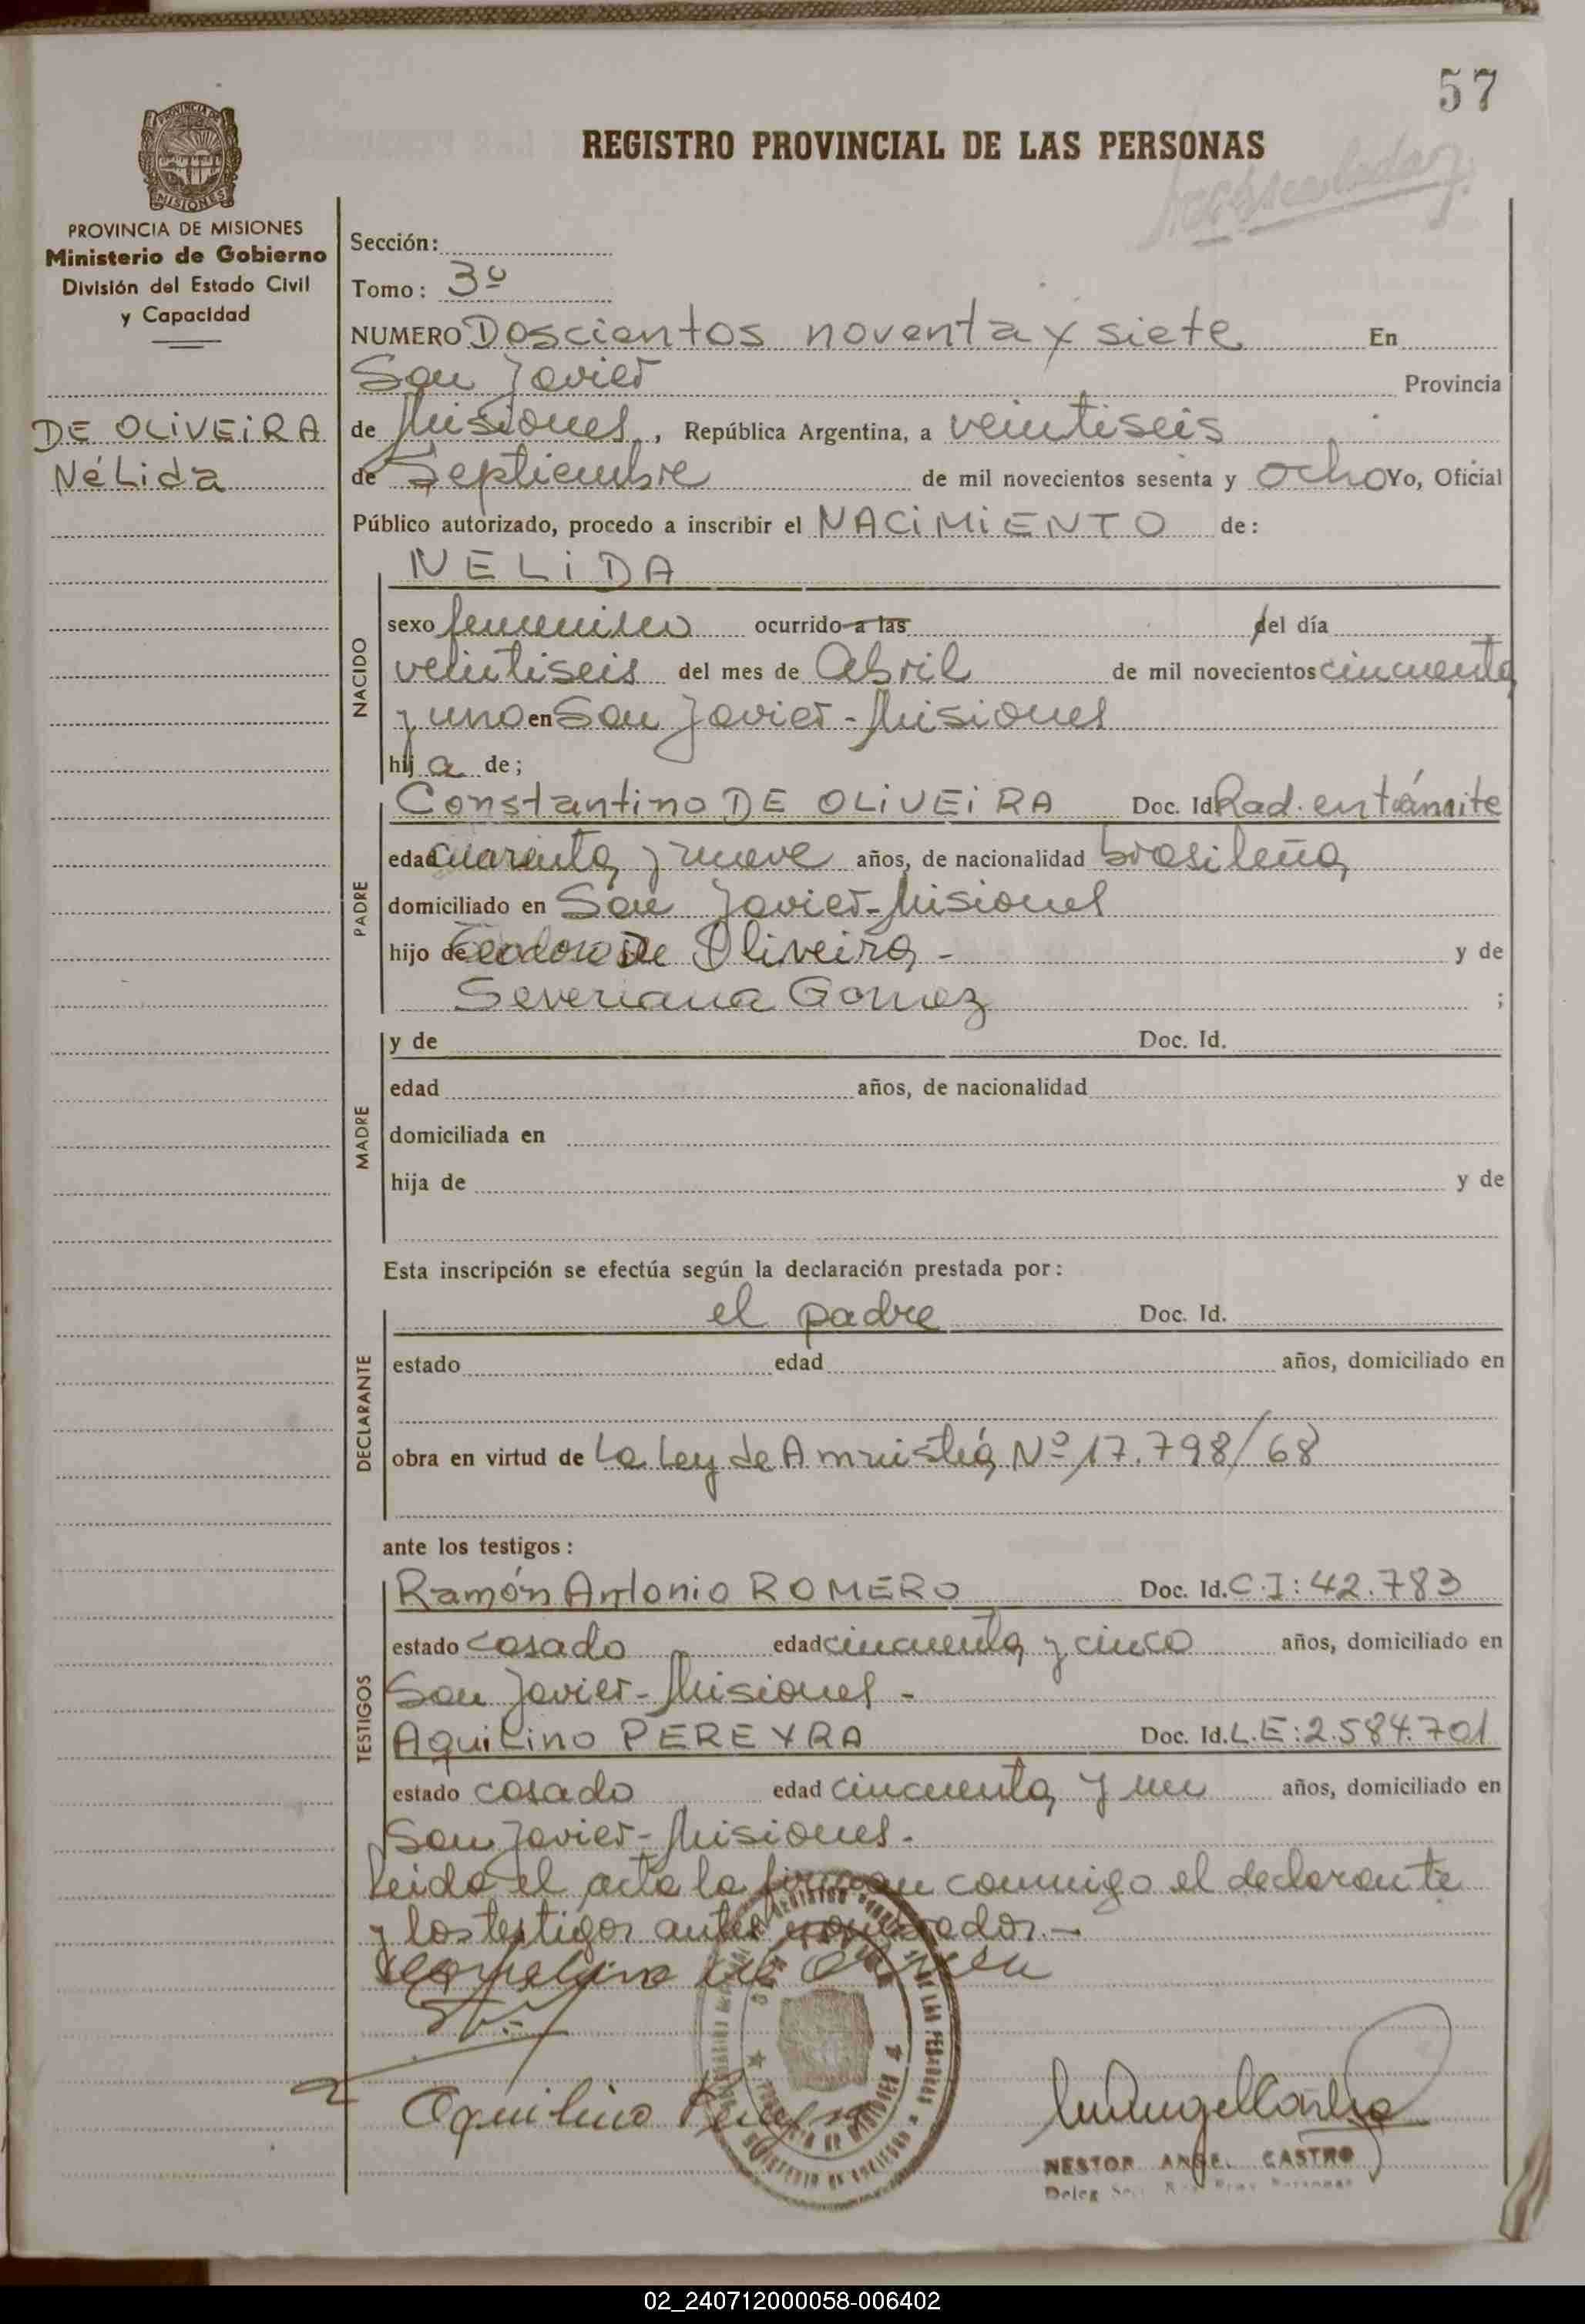 57
REGISTRO PROVINCIAL DE LAS PERSONAS
PROVINCIA DE
MISIONES
PROVINCIA DE MISIONES
Ministerio de Gobierno
División del Estado Civil
y Capacidad
DE OLIVEIRA
NéLida
Sección:
Tomo: 3º
NUMERO Doscientos noventa y siete En
San Javier Provincia
de Misiones, República Argentina, a veintiseis
de Septiembre de mil novecientos sesenta y ocho Yo, Oficial
Público autorizado, procedo a inscribir el NACIMIENTO de:
NELIDA
NACIDO
sexo femenino ocurrido a las del día
veintiseis del mes de Abril de mil novecientos cincuenta
y uno en San Javier - Misiones
hij a de;
PADRE
Constantino DE OLIVEIRA Doc. Id Rad. en trámite
edad cuarenta y nueve años, de nacionalidad brasileña
domiciliado en San Javier - Misiones
hijo de Teodoro De Oliveira - y de
Severiana Gomez ;
MADRE
y de Doc. Id.
edad años, de nacionalidad
domiciliada en
hija de y de
Esta inscripción se efectúa según la declaración prestada por:
DECLARANTE
el padre Doc. Id.
estado edad años, domiciliado en
obra en virtud de La Ley de Amnistía Nº 17.798/68
ante los testigos:
TESTIGOS
Ramón Antonio ROMERO Doc. Id. C.I: 42.783
estado casado edad cincuenta y cinco años, domiciliado en
San Javier - Misiones -
Aquilino PEREYRA Doc. Id. L.E: 2.584.701
estado casado edad cincuenta y un años, domiciliado en
San Javier - Misiones.
Leida el acta la firman conmigo el declarante
y los testigos antes nombrados.-
Aquilino Pereyra
NESTOR ANGEL CASTRO
02_240712000058-006402